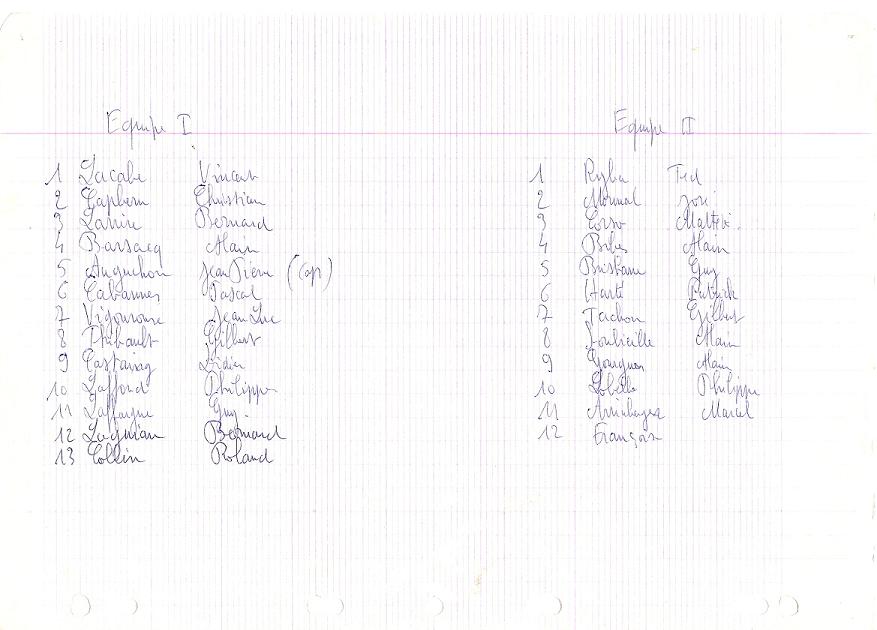 Equipe I
1 Lacabe Vincent
2 Capbern Christian
3 Larrire Bernard
4 Barsacq Alain
5 Jean Pierre (Cap)
6 Cabannes Pascal
7 Vigouroux Jean Luc
8 Thibault Gilbert
9 Castaing Didier
10 Laffond Philippe
11 Laffargue Guy.
12 Lagnian Bernard
13 Collin Roland
Equipe II
1 Ryba Ted
2 José
3 Corso
4 Bibes Alain
5 Brisbane Guy
6 Harté Patrick
7 Tachon Gilbert
8 Alain
9 Gourgues Alain
10 Philippe
11 Marcel
12 François